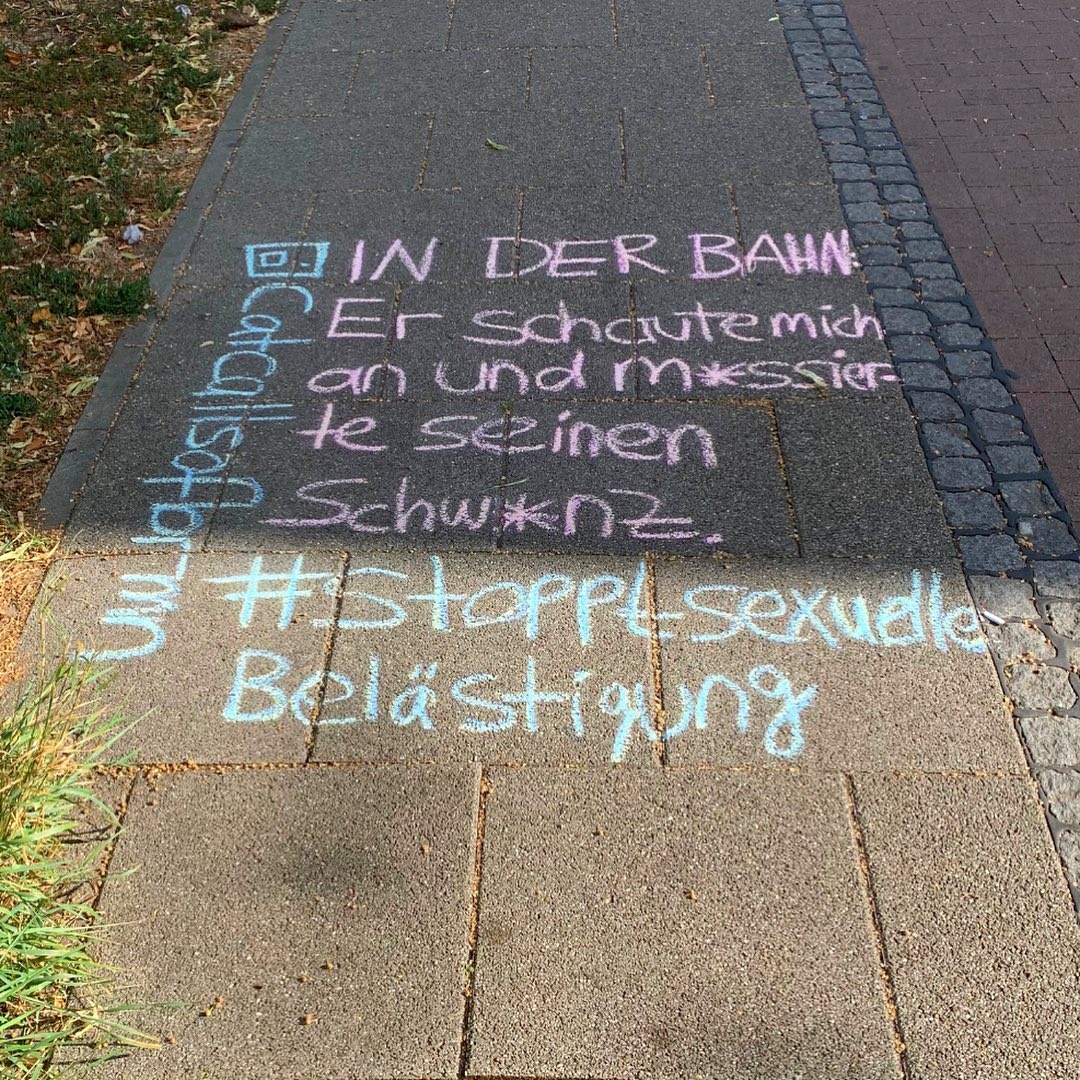 IN DER BAHN
Er schaute mich
an und m*ssier-
te seinen
Schw*nz.
#Stoppt sexuelle
Belästigung
Catcallsof